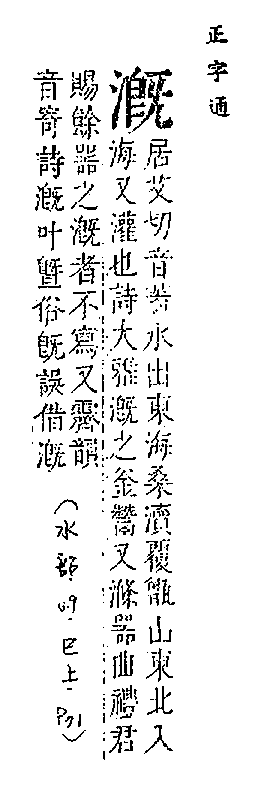 正字通
漑
居艾切音葢水出東海桑瀆覆甑山東北入
海又灌也詩大雅漑之釡鬵又滌器曲禮君
賜餘器之漑者不寫又霽韻
音寄詩漑叶曁俗旣誤借漑
(水部09.巳上.P71)